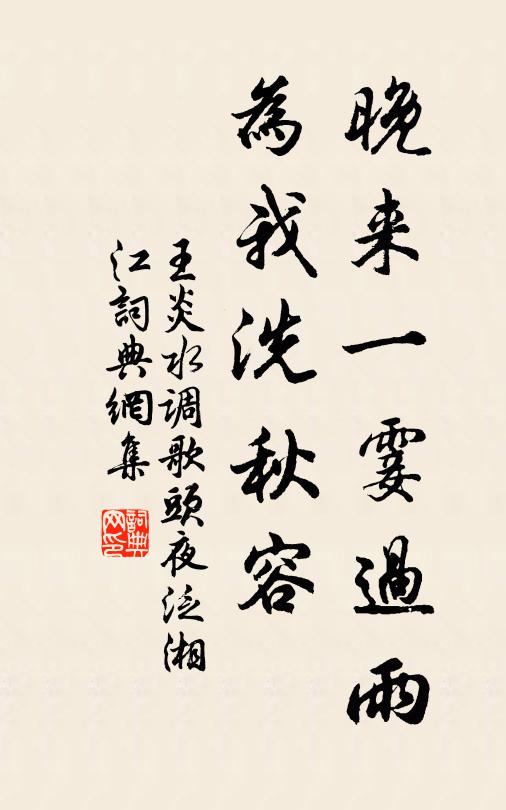 晚来一霎過雨
為我洗秋容
王炎水调歌頭夜泛湘
江詞典網集
詞典网印